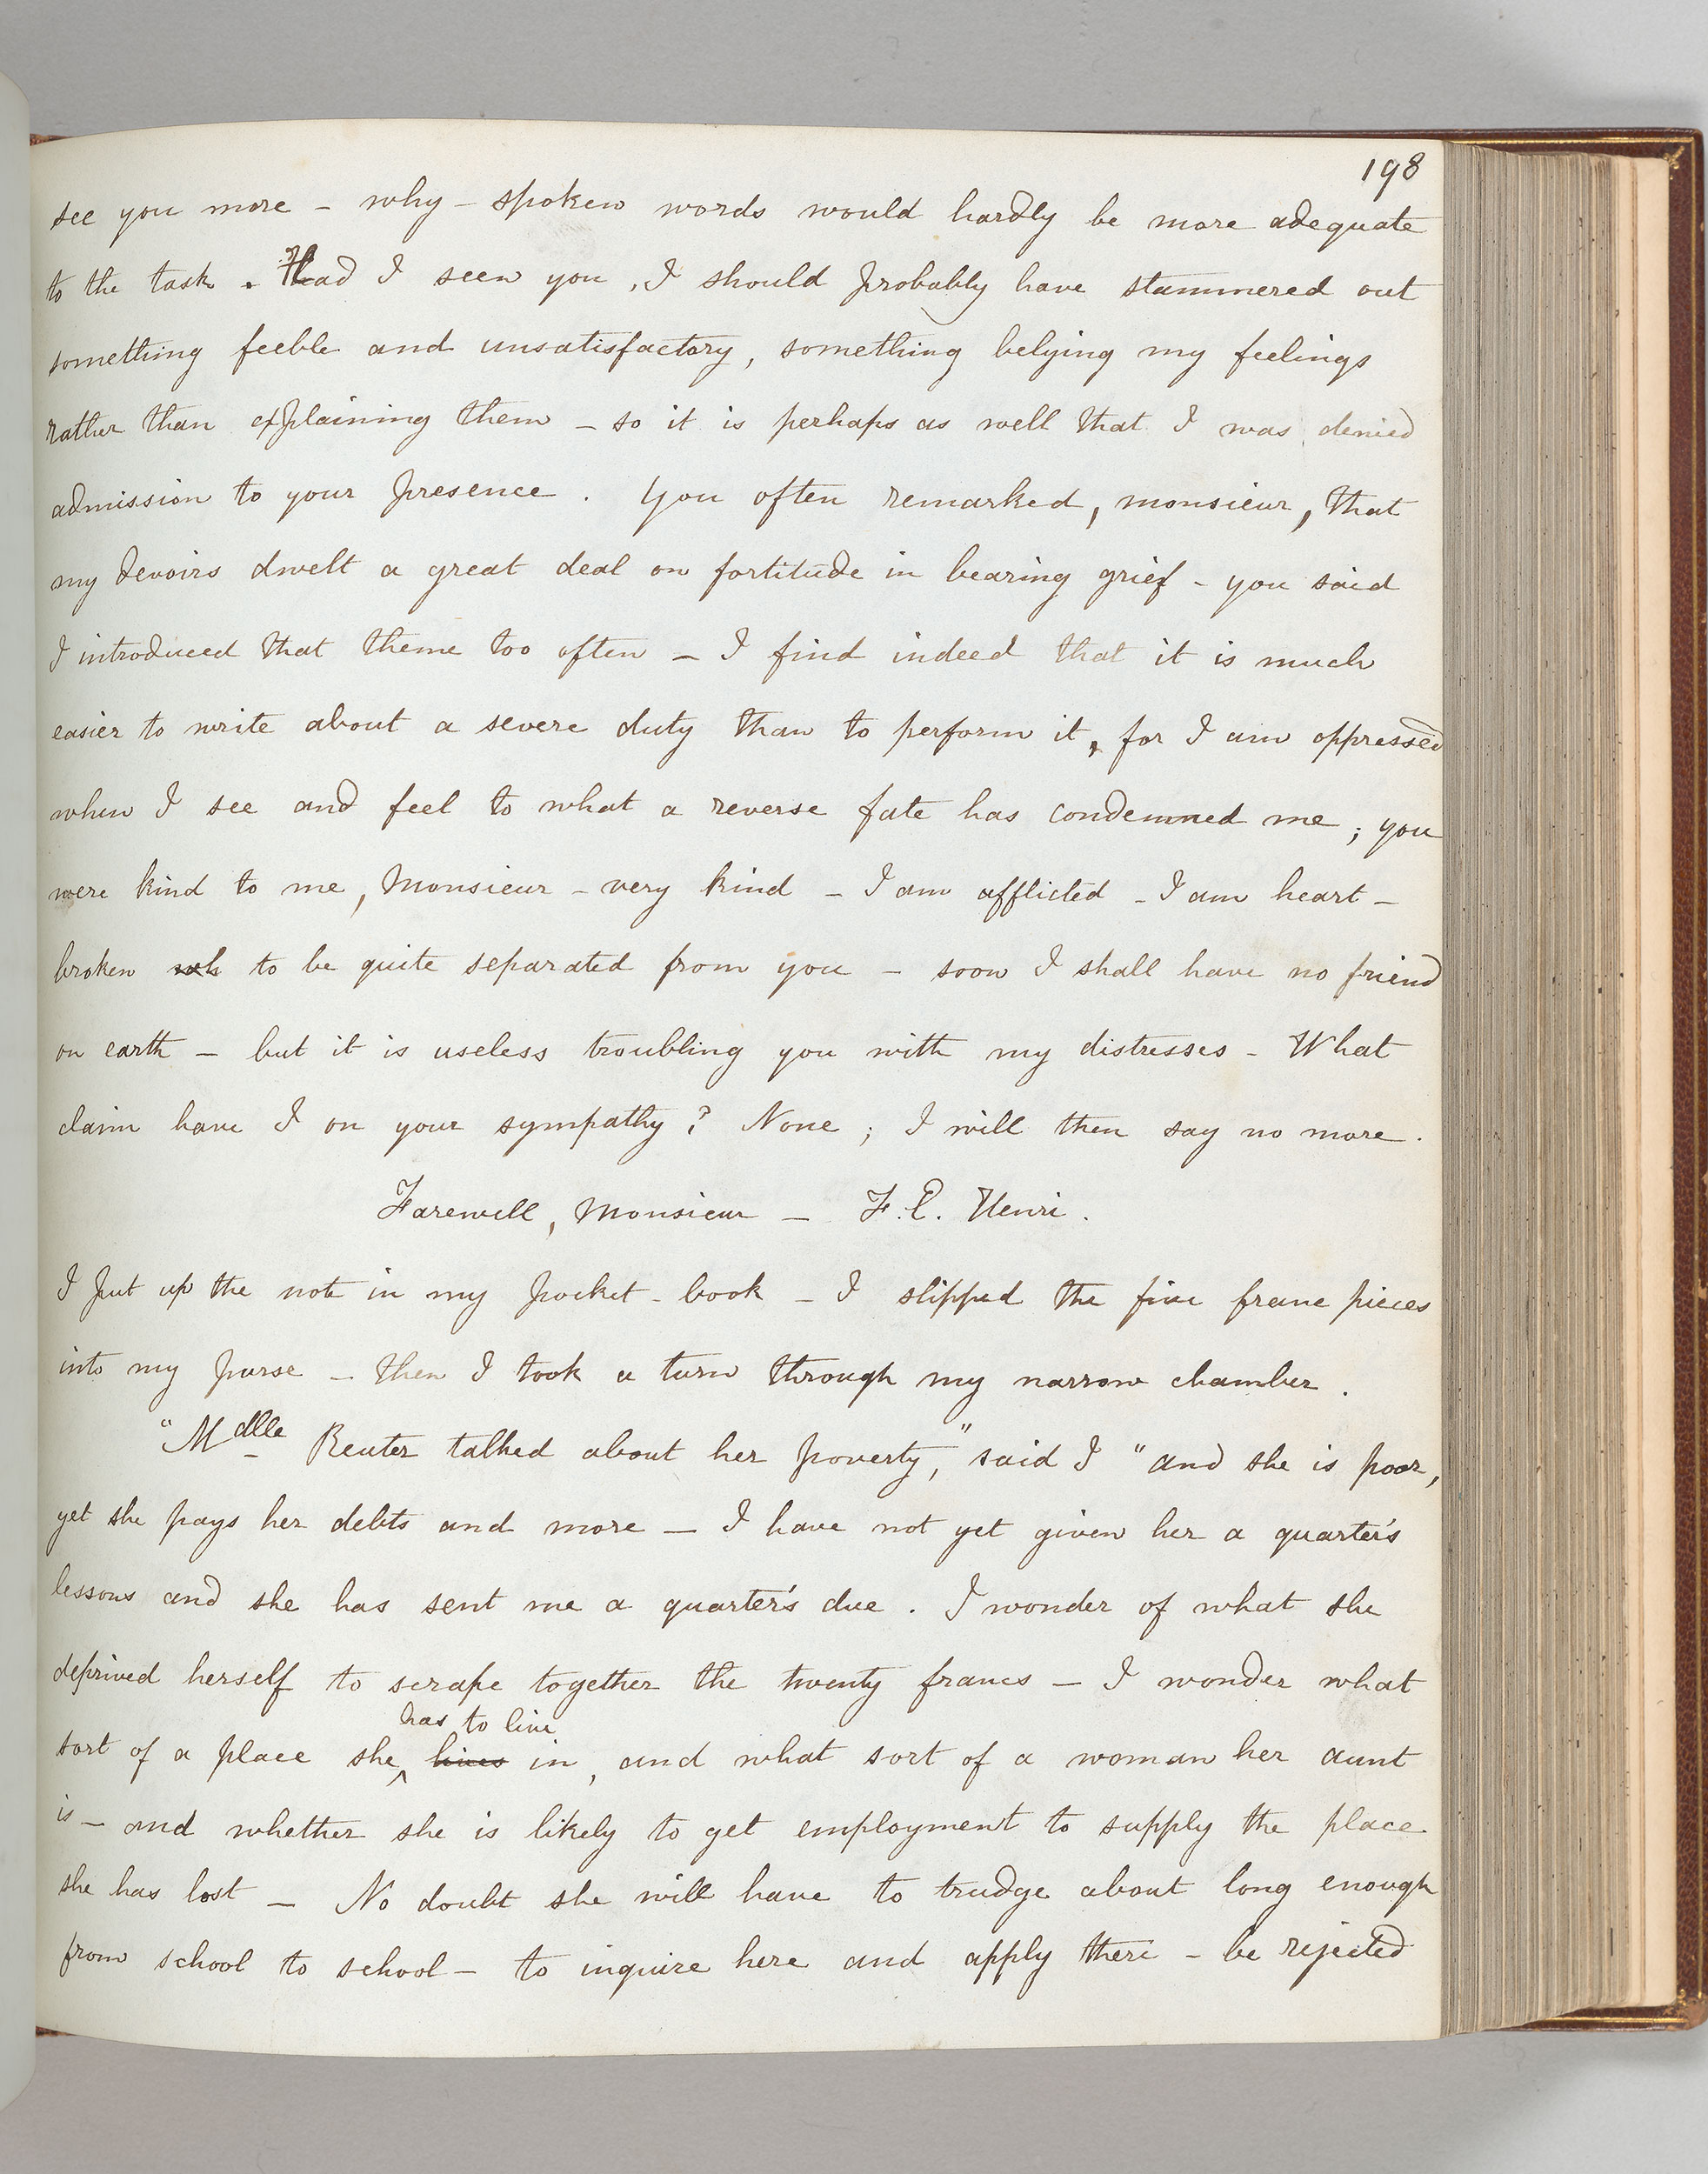 198
see you more - why - spoken words would hardly be more adequate
to the task. Had I seen you, I should probably have stammered out
something feeble and unsatisfactory, something belying my feelings
rather than explaining them - so it is perhaps as well that I was denied
admission to your presence. You often remarked, monsieur, that
my devoirs dwelt a great deal on fortitude in bearing grief - you said
I introduced that theme too often - I find indeed that it is much
easier to write about a severe duty than to perform it, for I am oppressed
when I see and feel to what a reverse fate has condemned me; you
were kind to me, Monsieur - very kind - I am afflicted - I am heart-
broken to be quite separated from you - soon I shall have no friend
on earth - but it is useless troubling you with my distresses - What
claim have I on your sympathy? None; I will then say no more.
Farewell, Monsieur - F. E. Henri.
I put up the note in my pocket-book - I slipped the five franc pieces
into my purse - then I took a turn through my narrow chamber.
"Mdlle Reuter talked about her poverty," said I "and she is poor,
yet she pays her debts and more - I have not yet given her a quarter's
lessons and she has sent me a quarter's due. I wonder of what she
deprived herself to scrape together the twenty francs - I wonder what
has to live
sort of a place she lives in, and what sort of a woman her aunt
is - and whether she is likely to get employment to supply the place
she has lost - No doubt she will have to trudge about long enough
from school to school - to inquire here and apply there - be rejected